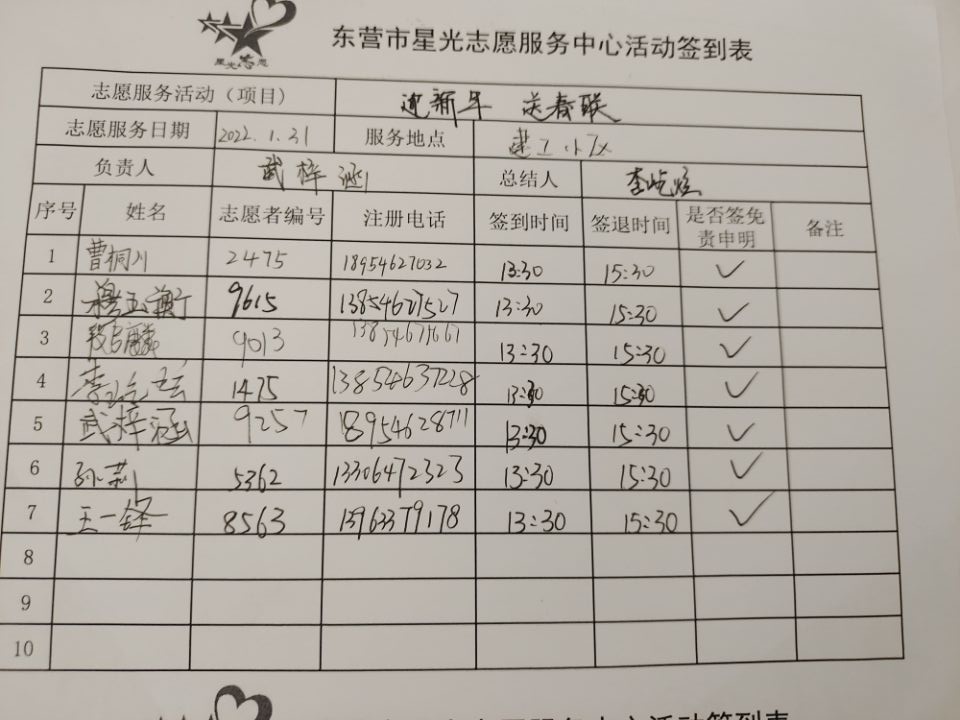 星光志愿
东营市星光志愿服务中心活动签到表
志愿服务活动（项目） 迎新年 送春联
志愿服务日期 2022.1.31 服务地点 建工小区
负责人 武梓涵 总结人 李屹炫
序号 姓名 志愿者编号 注册电话 签到时间 签退时间 是否签免责申明 备注
1 曹桐川 2475 18954627032 13:30 15:30 ✓
2 穆玉衡 9615 13854627527 13:30 15:30 ✓
3 9013 13854671661 13:30 15:30 ✓
4 李屹炫 1475 13854637228 13:30 15:30 ✓
5 武梓涵 9257 18954628711 13:30 15:30 ✓
6 孙莉 5362 13306472323 13:30 15:30 ✓
7 王一铎 8563 13963379178 13:30 15:30 ✓
8
9
10
东营市星光志愿服务中心活动签到表